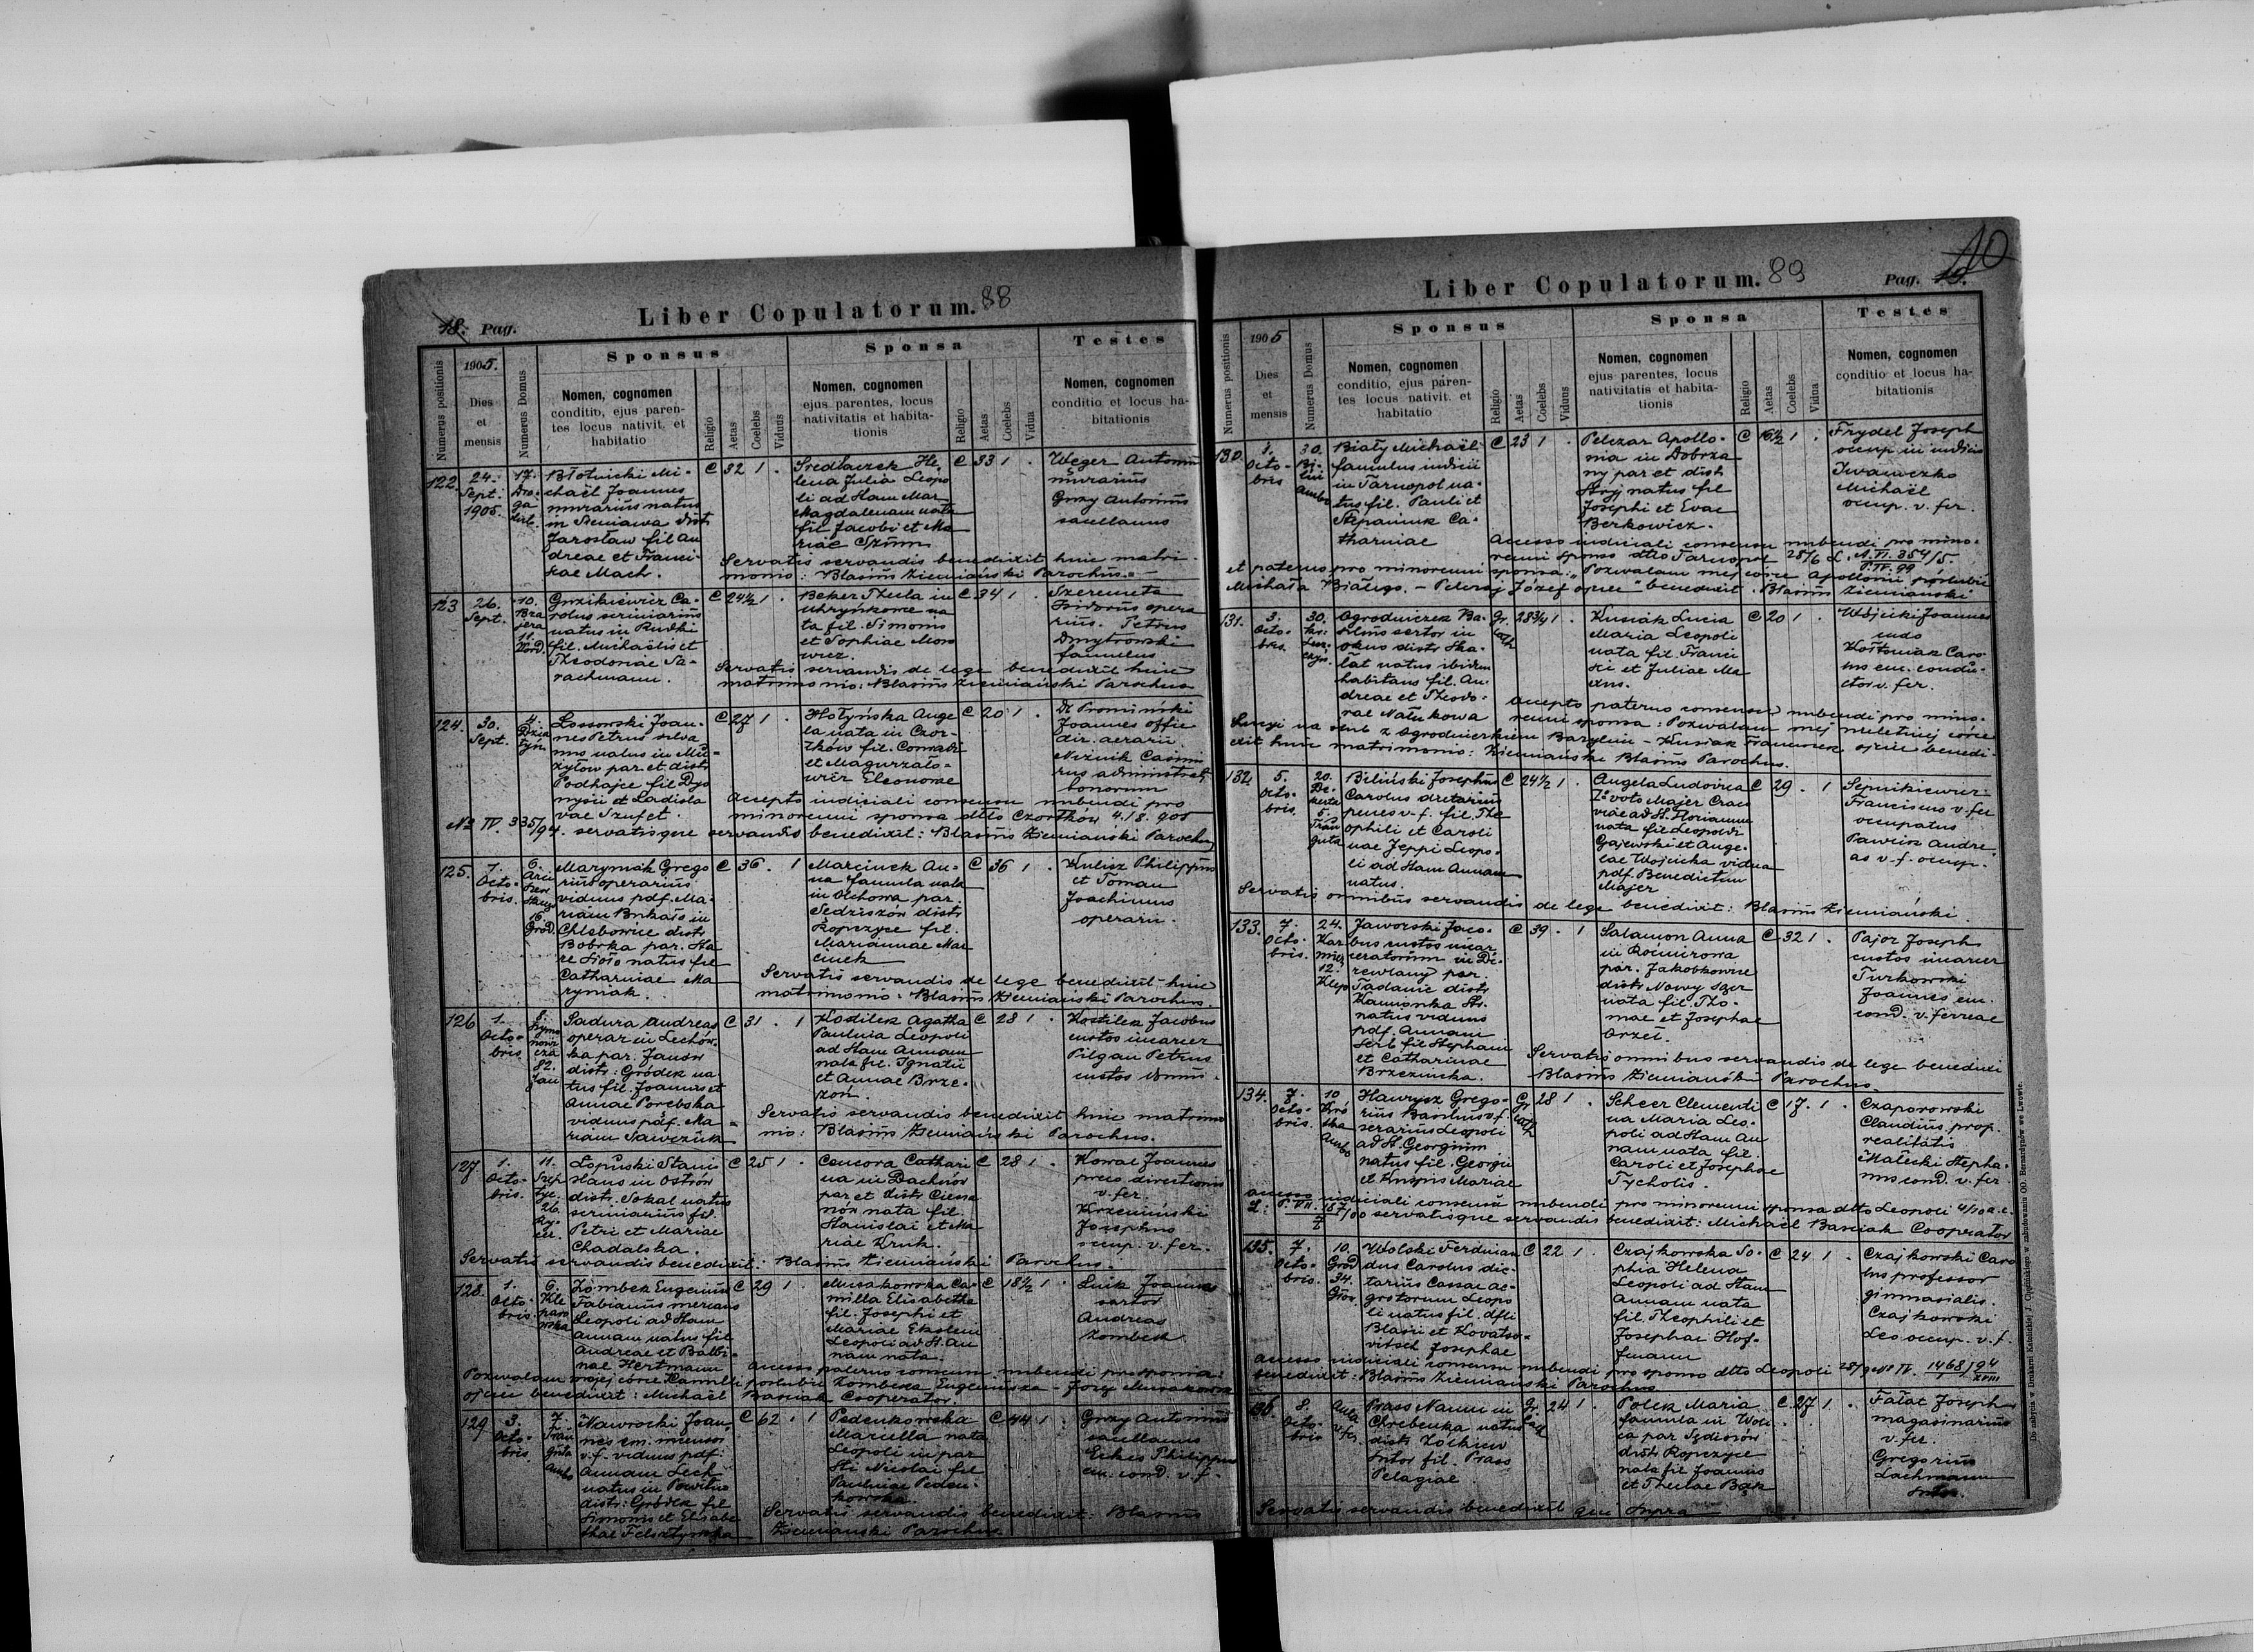 18. Pag.
Liber Copulatorum. 88
Numerus positionis
1905.
Dies
et
mensis
Numerus Domus
Sponsus
Nomen, cognomen
conditio, ejus paren-
tes locus nativit. et
habitatio
Religio
Aetas
Coelebs
Viduus
Sponsa
Nomen, cognomen
ejus parentes, locus
nativitatis et habita-
tionis
Religio
Aetas
Coelebs
Vidua
Testes
Nomen, cognomen
conditio et locus ha-
bitationis
122.
24.
Sept.
1905.
17.
Błotnicki Mi-
chaël Joannes
murarius natus
in Sieniawa distr
Jarosław fil An
dreae et Franci-
scae Mach.
C 32 1 .
Sredlaczek He-
lena Julia Leopo
li ad Stam Mar
Magdalenam nata
fil Jacobi et Ma
riae
C 33 1 .
Weger Antonius
murarius
Gnzy Antonius
sacellanus
Servatis servandis benedixit huic matri-
monio: Blasius Ziemiański Parochus.
123
26.
Sept.
10.
11.
Gnzikiewicz Ca-
rolus scriniarius
natus in Rudki
fil. Michaëlis et
Theodoriae Sa-
rachmann.
C 24½ 1
Beker Thecla in
Uhrynkowce na
ta fil. Simonis
et Sophiae
C 34 1 .
Szeremeta
Isidorus opera
rius. Petrus
Dmytrowski
famulus
Servatis servandis de lege benedixit huic
matrimonio: Blasius Ziemiański Parochus
124.
30.
Sept.
4.
Lossowski Joan-
nes Petrus silva
nus natus in Mu-
żyłow par et distr
Podhajce fil Dyo
nysii et Ladisla
vae Szufet.
C 27 1 .
Hołyńska Ange
la nata in Czor-
tków fil. Conradi
et Magurzało-
wicz Eleonorae
C 20 1 .
Dr Promiński
Joannes offic
dir. aerarii
Niznik Casimi
rus administrat
bonorum
Accepto iudiciali consensu nubendi pro
minorenni sponsa dtto Czortków 4./8. 905
No IV. 335/94. servatisque servandis benedixit: Blasius Ziemiański Parochus
125.
1.
Octo-
bris.
6.
16.
Gród.
Maryniak Grego
rius operarius
viduus pdf. Ma-
riam Brikało in
Chlebowice distr
Bobrka par. Sta
re Sioło natus fil
Catharinae Ma
ryniak.
C 36 . 1
Marciuek An-
na famula nata
in Olchowa par.
Sedziszów distr
Ropczyce fil.
Mariannae Mar
ciuek
C 36 1 .
Kulisz Philippus
et Toman
Joachimus
operarii.
Servatis servandis de lege benedixit huic
matrimonio: Blasius Ziemiański Parochus.
126
1.
Octo-
bris
8.
82.
Jan
Sadura Andreas
operar in Lechów-
ka par. Janów
distr: Gródek na
tus fil. Joannis et
Annae Porębska
viduus pdf. Ma-
riam Sawczuk
C 31 . 1
Kostilek Agatha
Paulina Leopoli
ad Stam Annam
nata fil. Ignatii
et Annae Brze-
zon.
C 28 1 .
Kostilek Jacobus
custos incarcer
Pilgan Petrus
custos domus.
Servatis servandis benedixit huic matrimo
nio: Blasius Ziemiański Parochus.
127.
1.
Octo-
bris.
11.
26.
Łopuski Stanis
slaus in Ostrów
distr. Sokal natus
scriniarius fil.
Petri et Mariae
Chadalska.
C 25 1 .
Cencora Cathari
na in Dachnów
par et distr Ciesza
nów nata fil.
Stanislai et Ma
riae Kruk.
C 28 1 .
Kowal Joannes
praeco directionis
v. fer.
Krzemiński
Josephus
occup. v. fer.
Servatis servandis benedixit: Blasius Ziemiański Parochus.
128.
1.
Octo-
bris.
6.
Kle
paro
wska
Zombek Eugenius
Fabianus mercans
Leopoli ad Stam
Annam natus fil
Andreae et Balbi-
nae Hertmann
C 29 1 .
Musakowska Ca-
milla Elisabetha
fil. Josephi et
Mariae Ekslein
Leopoli ad St. An
nam nata.
C 18½ 1 .
Luik Joannes
sartor
Andreas
Zombek
accesso paterno consensu nubendi pro sponsa:
Pozwalam mojej córce Kamilli poślubić Zombeka Eugeniusza - Józef Musakowski
ojciec benedixit: Michaël Basciak Cooperator.
129
3.
Octo-
bris
7.
Nawrocki Joan-
nes em. mensor
v. f. viduus pdf:
Annam Lech
natus in Powitno
distr: Gródek fil
Simonis et Elisabe
thae Felsztyńska
C 62 . 1
Pedenkowska
Marcella nata
Leopoli in par
Sti Nicolai fil
Paulinae Peden-
kowska.
C 44 1 .
Gnzy Antonius
sacellanus
Eckes Philippus
em. cond. v. f.
Servatis servandis benedixit: Blasius
Ziemiański Parochus
Liber Copulatorum. 89
Pag. 19.
10
Numerus positionis
1905
Dies
et
mensis
Numerus Domus
Sponsus
Nomen, cognomen
conditio, ejus paren-
tes locus nativit. et
habitatio
Religio
Aetas
Coelebs
Viduus
Sponsa
Nomen, cognomen
ejus parentes, locus
nativitatis et habita-
tionis
Religio
Aetas
Coelebs
Vidua
Testes
Nomen, cognomen
conditio et locus ha-
bitationis
130.
1.
Octo-
bris
30.
Ambo
Biały Michaël
famulus iudicii
in Tarnopol na-
tus fil. Pauli et
Stepaniuk Ca-
tharinae
C 23 1 .
Pelczar Apollo-
nia in Dobrza
ny par et distr
Stryj natus fil
Josephi et Evae
Berkowicz.
C 16½ 1 .
Frydel Joseph
occup in iudicio
Iwaneczko
Michaël
occup. v. fer.
Accesso iudiciali consensu nubendi pro mino-
renni sponso dtto Tarnopol 28/6 L. A.VI. 354/5.
P.IV. 99
et paterno pro minorenni sponsa: „Pozwalam mej córce Apolonii poślubić
Michała Białego. - Pelczar Józef ojciec" benedixit. Blasius Ziemiański
131.
3.
Octo-
bris.
30.
Ogrodniczek Ba-
silius sertor in
okno distr Ska-
łat natus ibidem
habitans fil. An-
dreae et Theodo-
rae Natukowa
Gr. cath
28¾ 1 .
Kusiak Lucia
Maria Leopoli
nata fil Franci
sci et Juliae Ma
dus.
C 20 1 .
Wójcicki Joannes
Kostoniak Caro
lus em. condu-
ctor v. fer.
accepto paterno consensu nubendi pro mino-
renni sponsa: Pozwalam mej nieletniej córce
Łucyi na ślub z Ogrodniczkiem Bazylim - Kusiak Franciszek ojciec benedi-
xit huic matrimonio: Ziemiański Blasius Parochus.
132.
5.
Octo-
bris.
20.
5.
Biliński Josephus
Carolus dietarius
penes v. f. fil. The
ophili et Caroli
nae Jeppi Leopo-
li ad Stam Annam
natus.
C 24½ 1 .
Angela Ludovica
2° voto Majer Craco
viae ad St. Florianum
nata fil Leopoldi
Gajewski et Ange-
lae Wojnicka vidua
pdf. Benedictum
Majer
C 29 . 1
Sepnikiewicz
Franciscus v. fer
occupatus
Pawlik Andre
as v. f. occup.
Servatis omnibus servandis de lege benedixit: Blasius Ziemiański.
133.
7.
Octo-
bris.
24.
12.
Klep
Jaworski Jaco-
bus custos incar
ceratorum in De-
rewlany par.
Tadanie distr
Kamionka Str.
natus viduus
pdf. Annam
Serb fil Stephani
et Catharinae
Brzezicka.
C 39 . 1
Salamon Anna
in Rożnirowa
par. Jakobkowice
distr Nowy Sącz
nata fil. Tho-
mae et Josephae
Orzeł.
C 32 1 .
Pajor Joseph
custos incarcer
Turkowski
Joannes em.
cond. v. ferreae
Servatis omnibus servandis de lege benedixi
Blasius Ziemiański Parochus
134.
7.
Octo-
bris.
10
Kró
tka
Ambo
Hawrysz Grego-
rius Basilius v. f.
serarius Leopoli
ad St. Georgium
natus fil. Georgii
et Mariae
Gr cath
28 1 .
Scheer Clementi
na Maria Leo-
poli ad Stam An
nam nata fil.
Caroli et Josephae
Tycholis.
C 17. 1 .
Czaporowski
Claudius prop.
realitatis
Małecki Stepha-
nus cond. v. fer
accesso iudiciali consensu nubendi pro minorenni sponsa dtto Leopoli 4/10 a. c.
L: P. VII. 187/00 servatisque servandis benedixit: Michaël Basciak Cooperator
135.
7.
Octo-
bris.
10.
Gród
34.
Gród.
Wolski Ferdinan
dus Carolus die-
tarius Cassae ae-
grotorum Leopo
li natus fil. dfti
Blasii et Kovatso-
vitsch Josephae
C 22 1 .
Czajkowska So-
phia Helena
Leopoli ad Stam
Annam nata
fil. Theophili et
Josephae Hof-
fmann
C 24 1 .
Czajkowski Caro
lus professor
gimnasialis.
Czajkowski
Leo occup. v. f.
accesso iudiciali consensu nubendi pro sponso dtto Leopoli 28/9 No IV. 1468/94
XVIII
benedixit: Blasius Ziemiański Parochus
136.
8.
Octo-
bris
Prass Nauni in
Chrebenka natus
distr Żółkiew
fil. Prass
Pelagiae
Gr. cath
24 1 .
Polek Maria
famula in Woli-
ca par Sędziszów
distr Ropczyce
nata fil Joannis
et Theclae Bąk
C 27 1 .
Fałat Joseph
magasinarius
v. fer.
Gregorius
Lachmann
Servatis servandis benedixit qui supra
Do nabycia w Drukarni Katolickiej J. Chęcińskiego w zabudowaniu OO. Bernardynów we Lwowie.